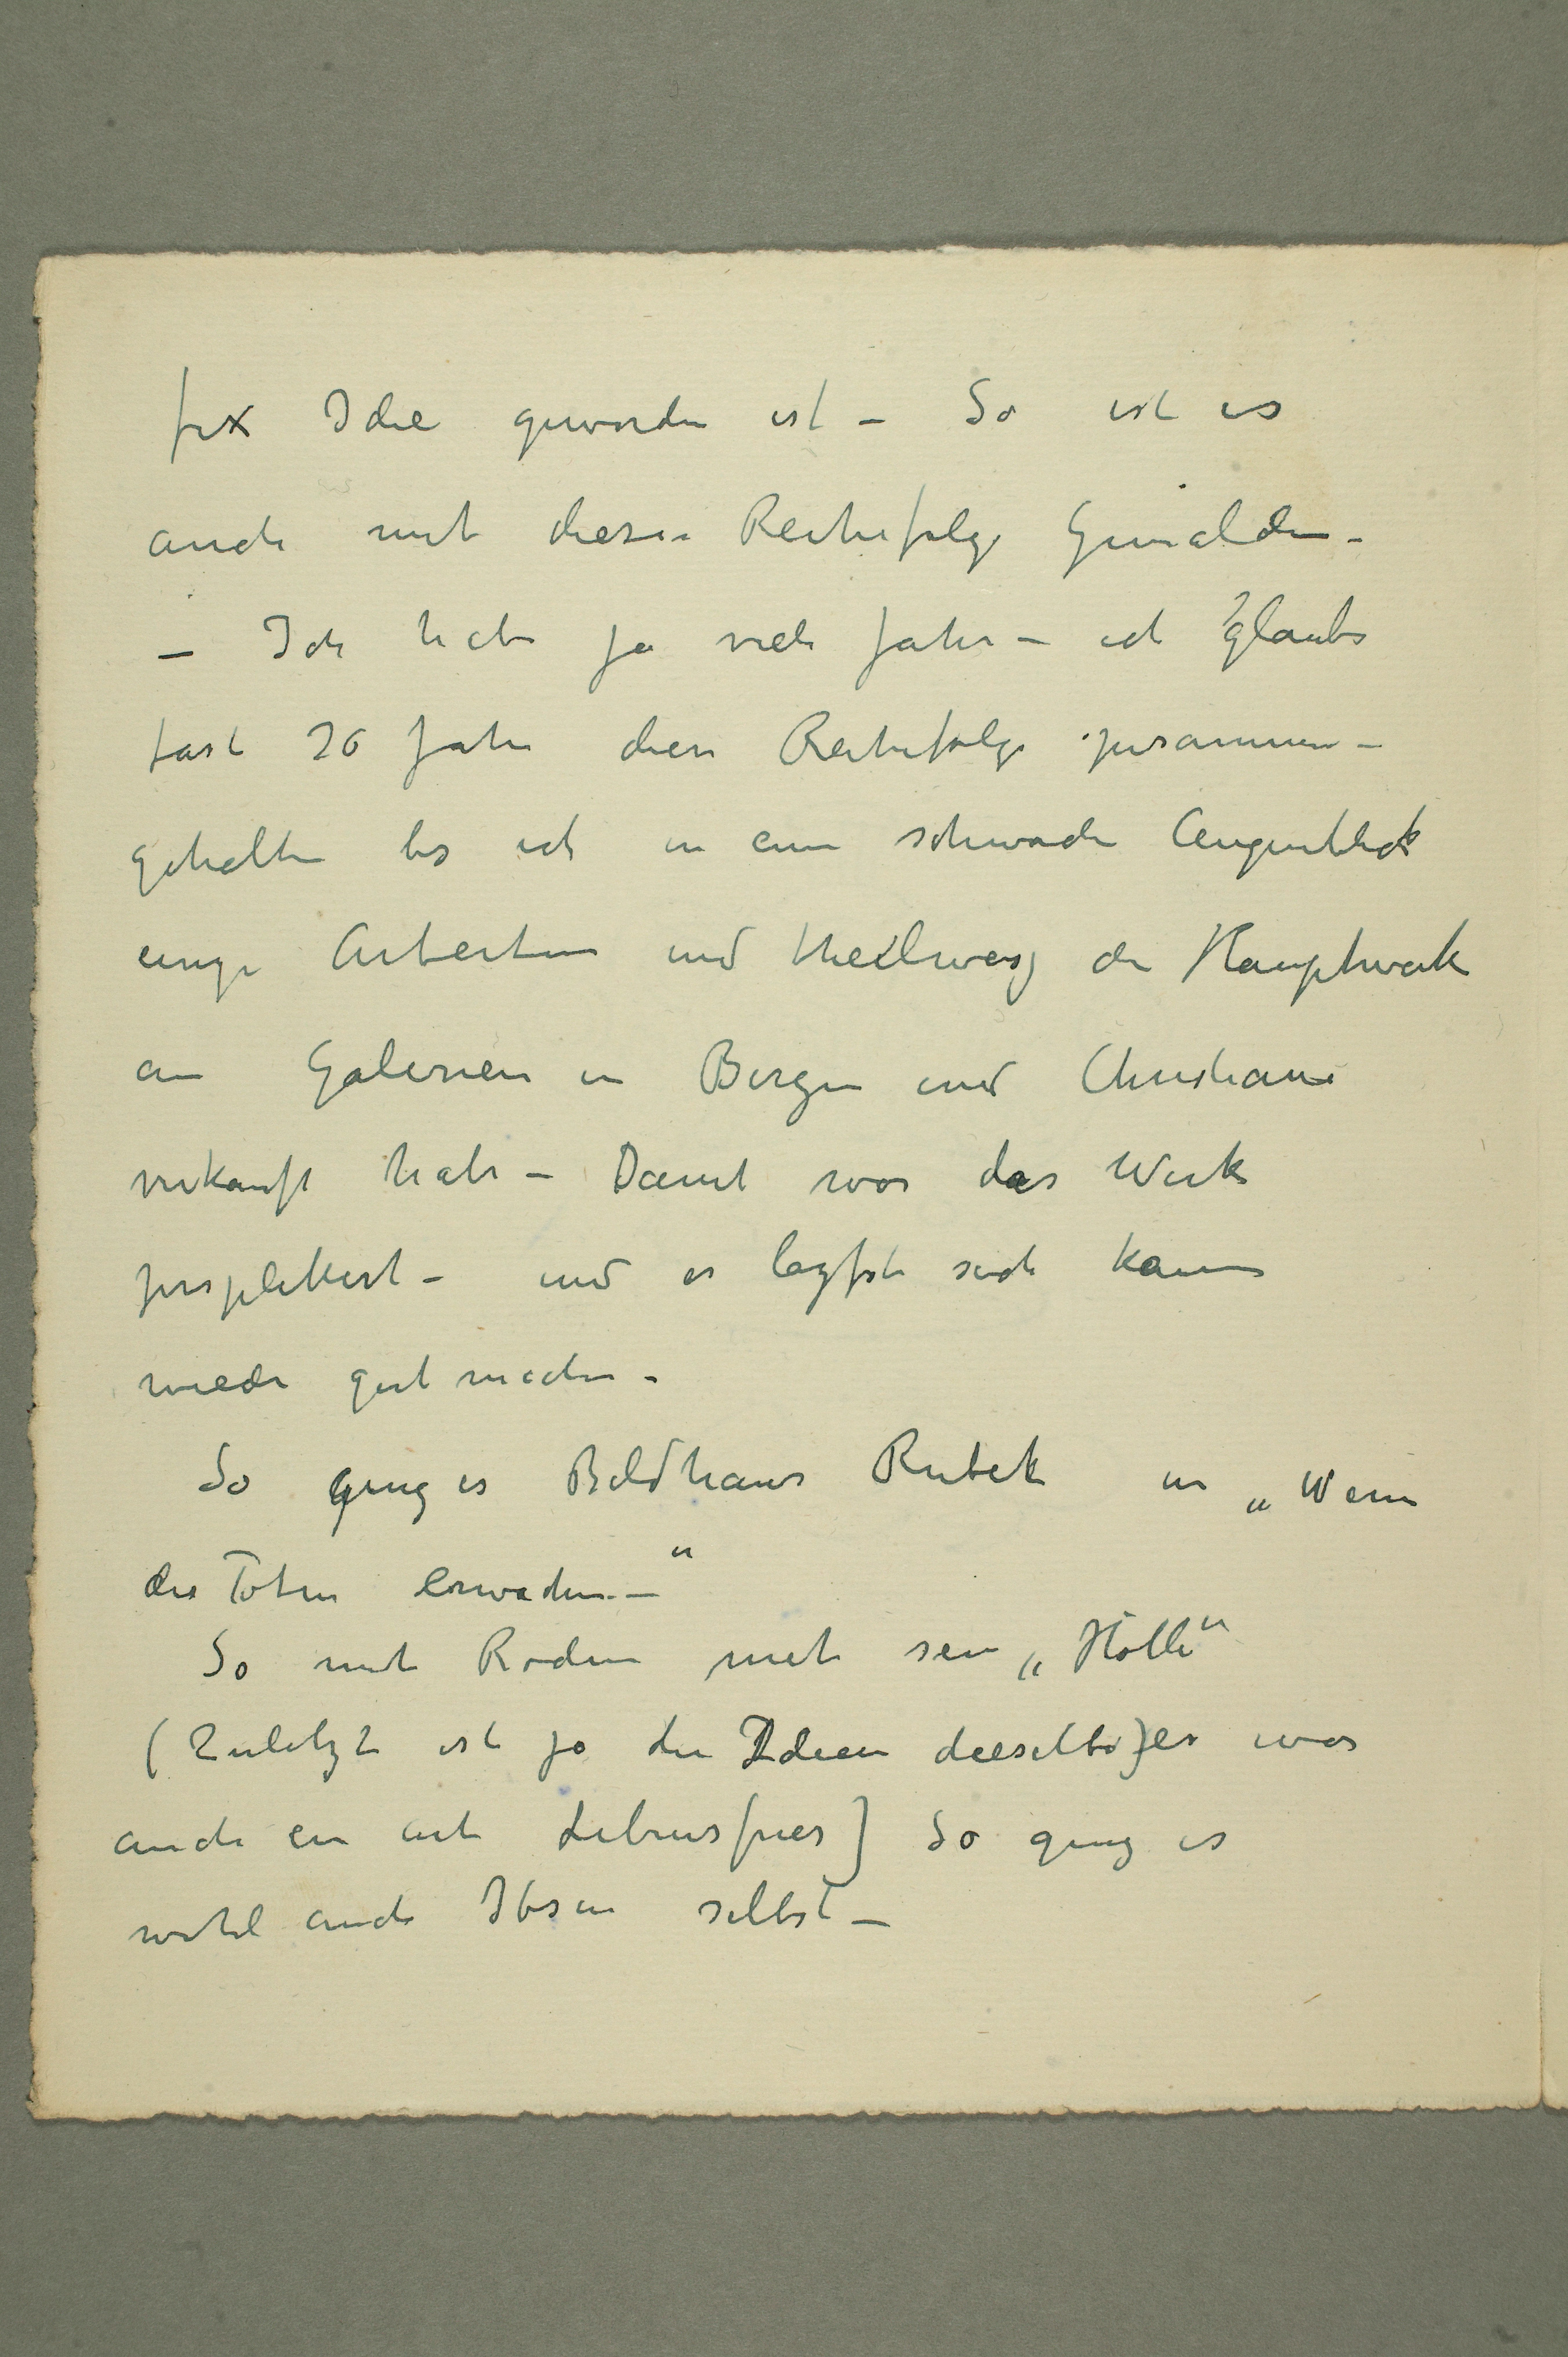 fix Idee geworden ist – So ist es
auch mit dieser Reihefolge Gemälden –
– Ich habe ja viele Jahre – ich glaube
fast 20 Jahre diese Reihefolge zusammen–
gehalten bis ich in einen schwachen Augenblick
einige Arbeiten und theilweise die Hauptwerke
an Galerien in Bergen und Christiania
verkauft habe – Damit war das Werk
zersplittert – und es laszst sich kaum
wieder gut machen –
So ging es Bildhauer Rubek in „Wenn
die Toten erwachen –“
So mit Rodin mit sein „Hölle“
(Zuletzt ist ja die Ideen dieselbe) es war
auch ein art Lebensfries] So ging es
wohl auch Ibsen selbst –